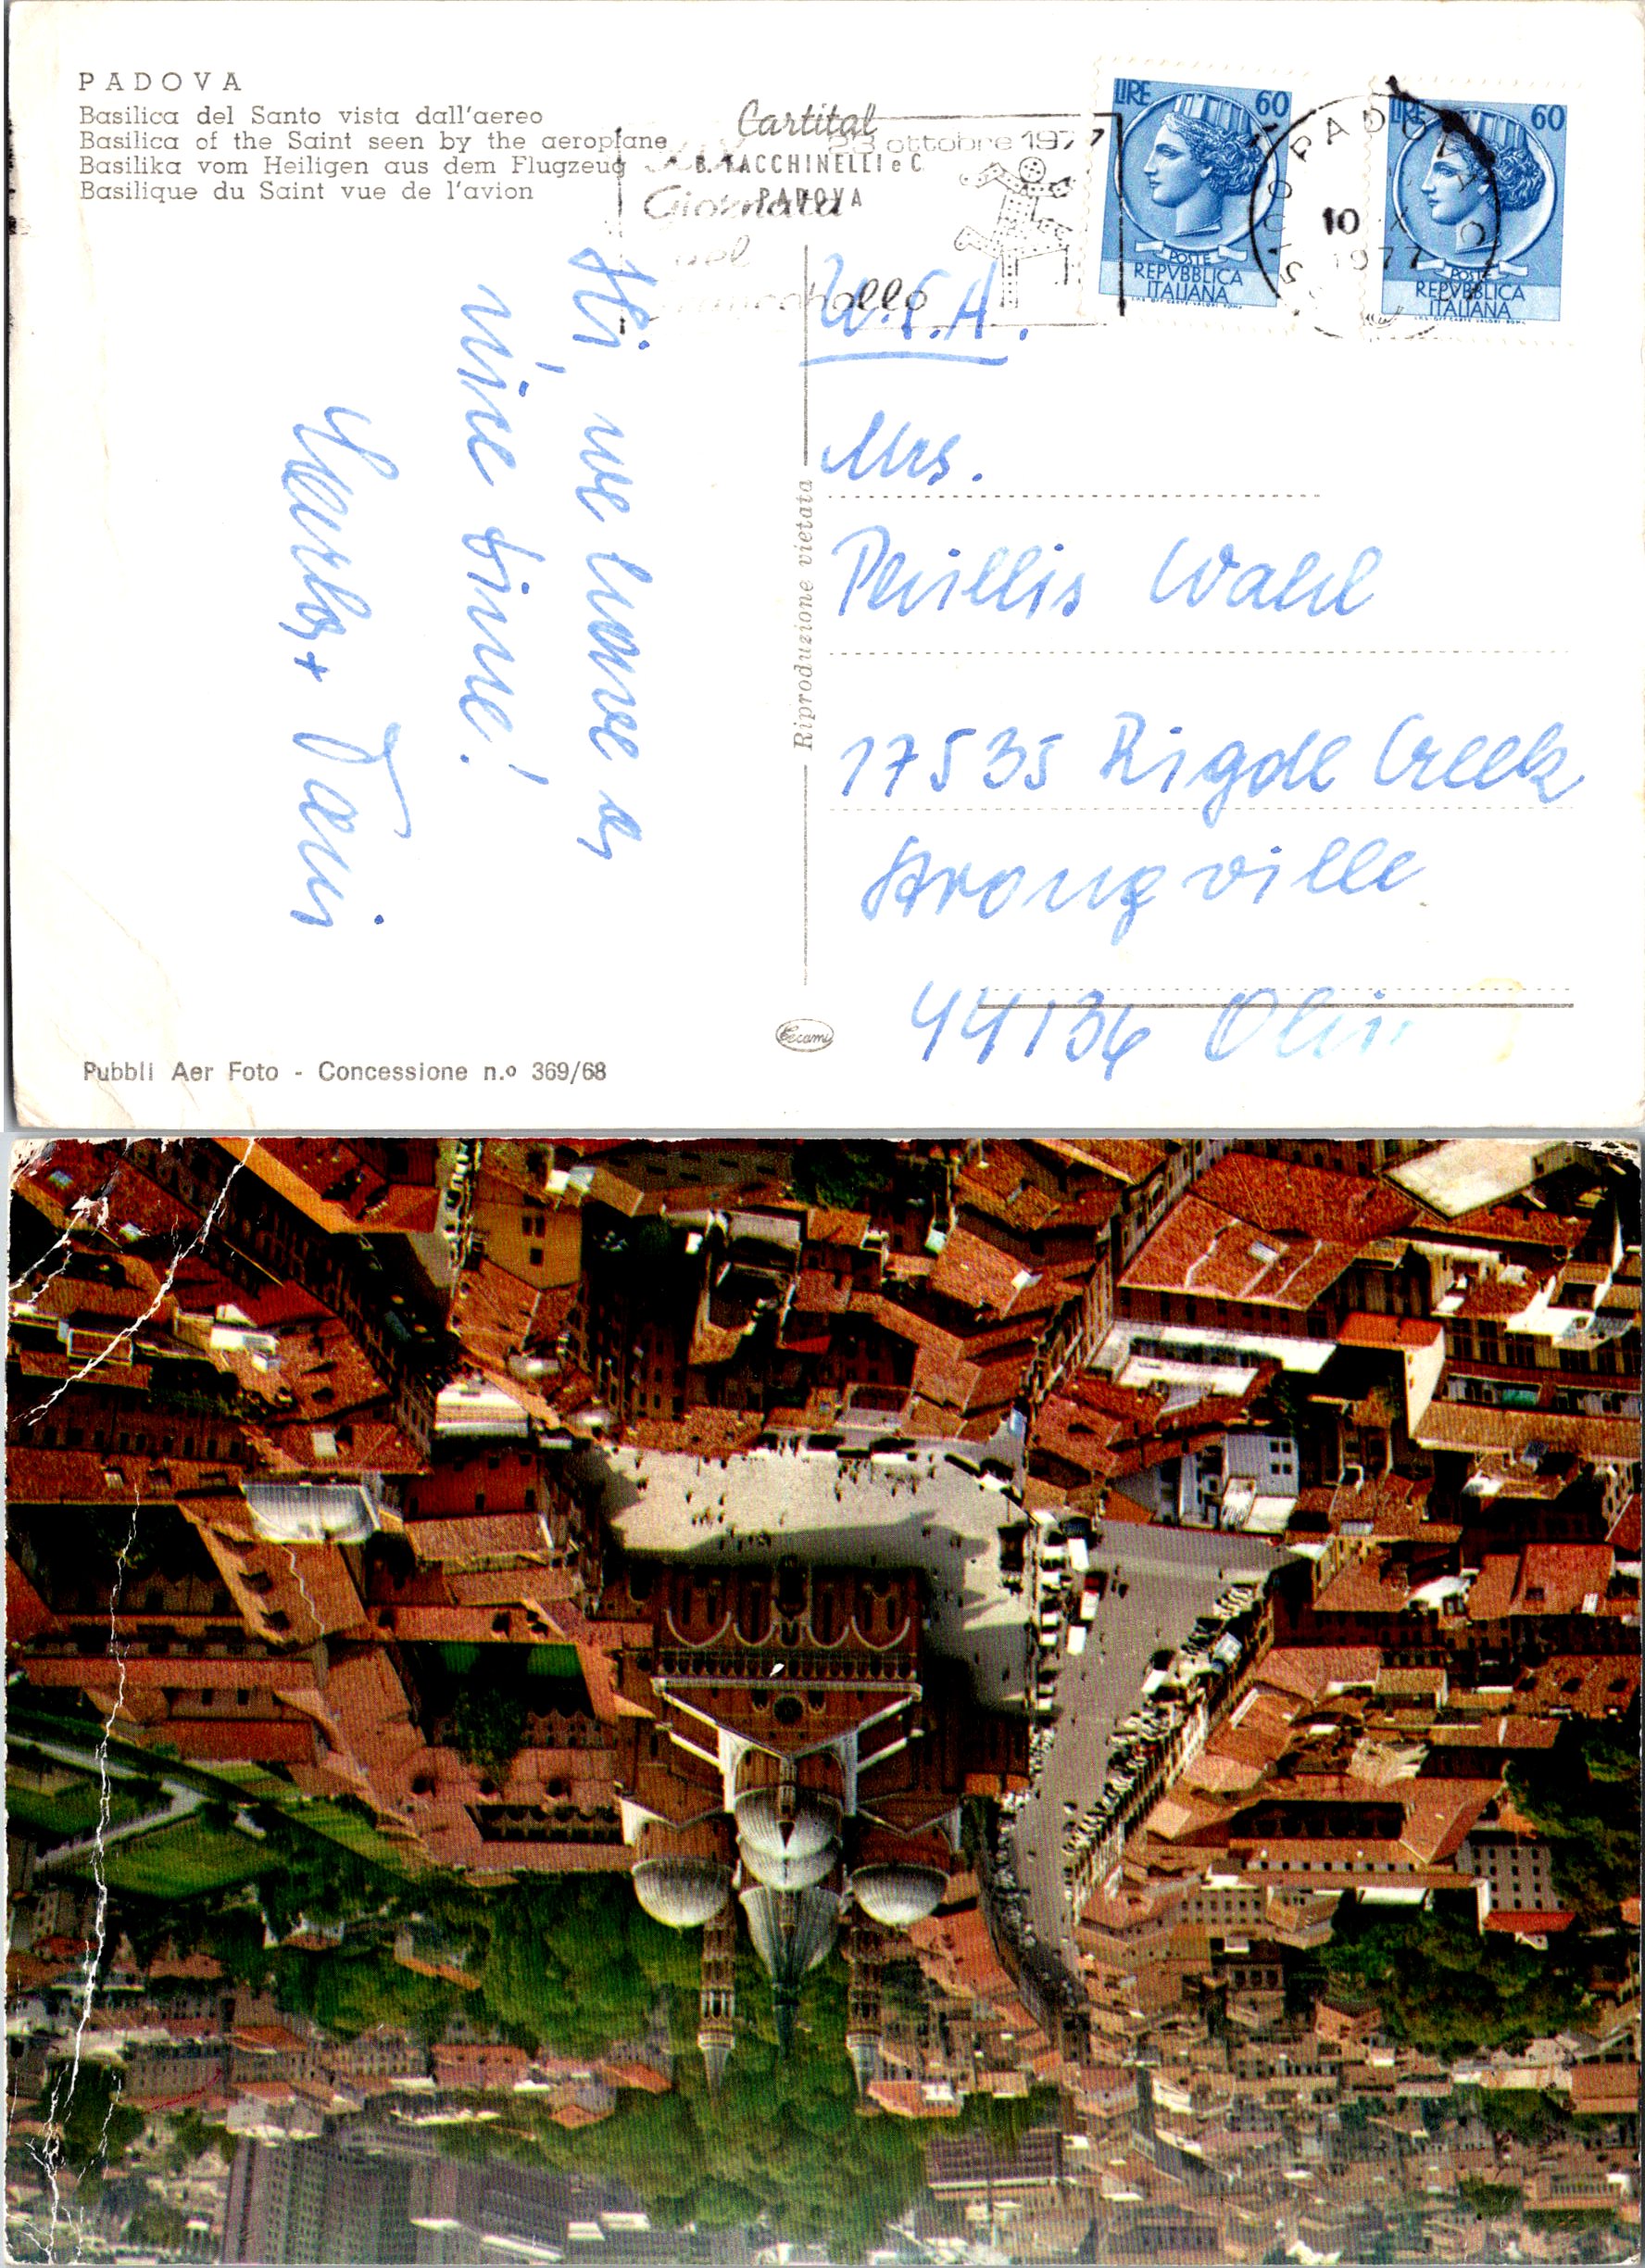 PADOVA
Basilica del Santo vista dall'aereo
Basilica of the Saint seen by the aeroplane
Basilika vom Heiligen aus dem Flugzeug
Basilique du Saint vue de l'avion
Cartital
B. TACCHINELLI e C
PADOVA
23 ottobre 1977
XIX
Giornata
del
francobollo
LIRE 60
POSTE
REPVBBLICA
ITALIANA
I.P.S. OFF. CARTE VALORI ROMA
LIRE 60
POSTE
REPVBBLICA
ITALIANA
I.P.S. OFF. CARTE VALORI ROMA
PADOVA
10 X
1977
Hi, we have a
nice time!
+ Dani
U.S.A.
Mrs.
Phillis Wahl
17535 Rigde Creek
Strongville
44136 Ohio
Riproduzione vietata
Cecami
Pubbli Aer Foto - Concessione n.º 369/68